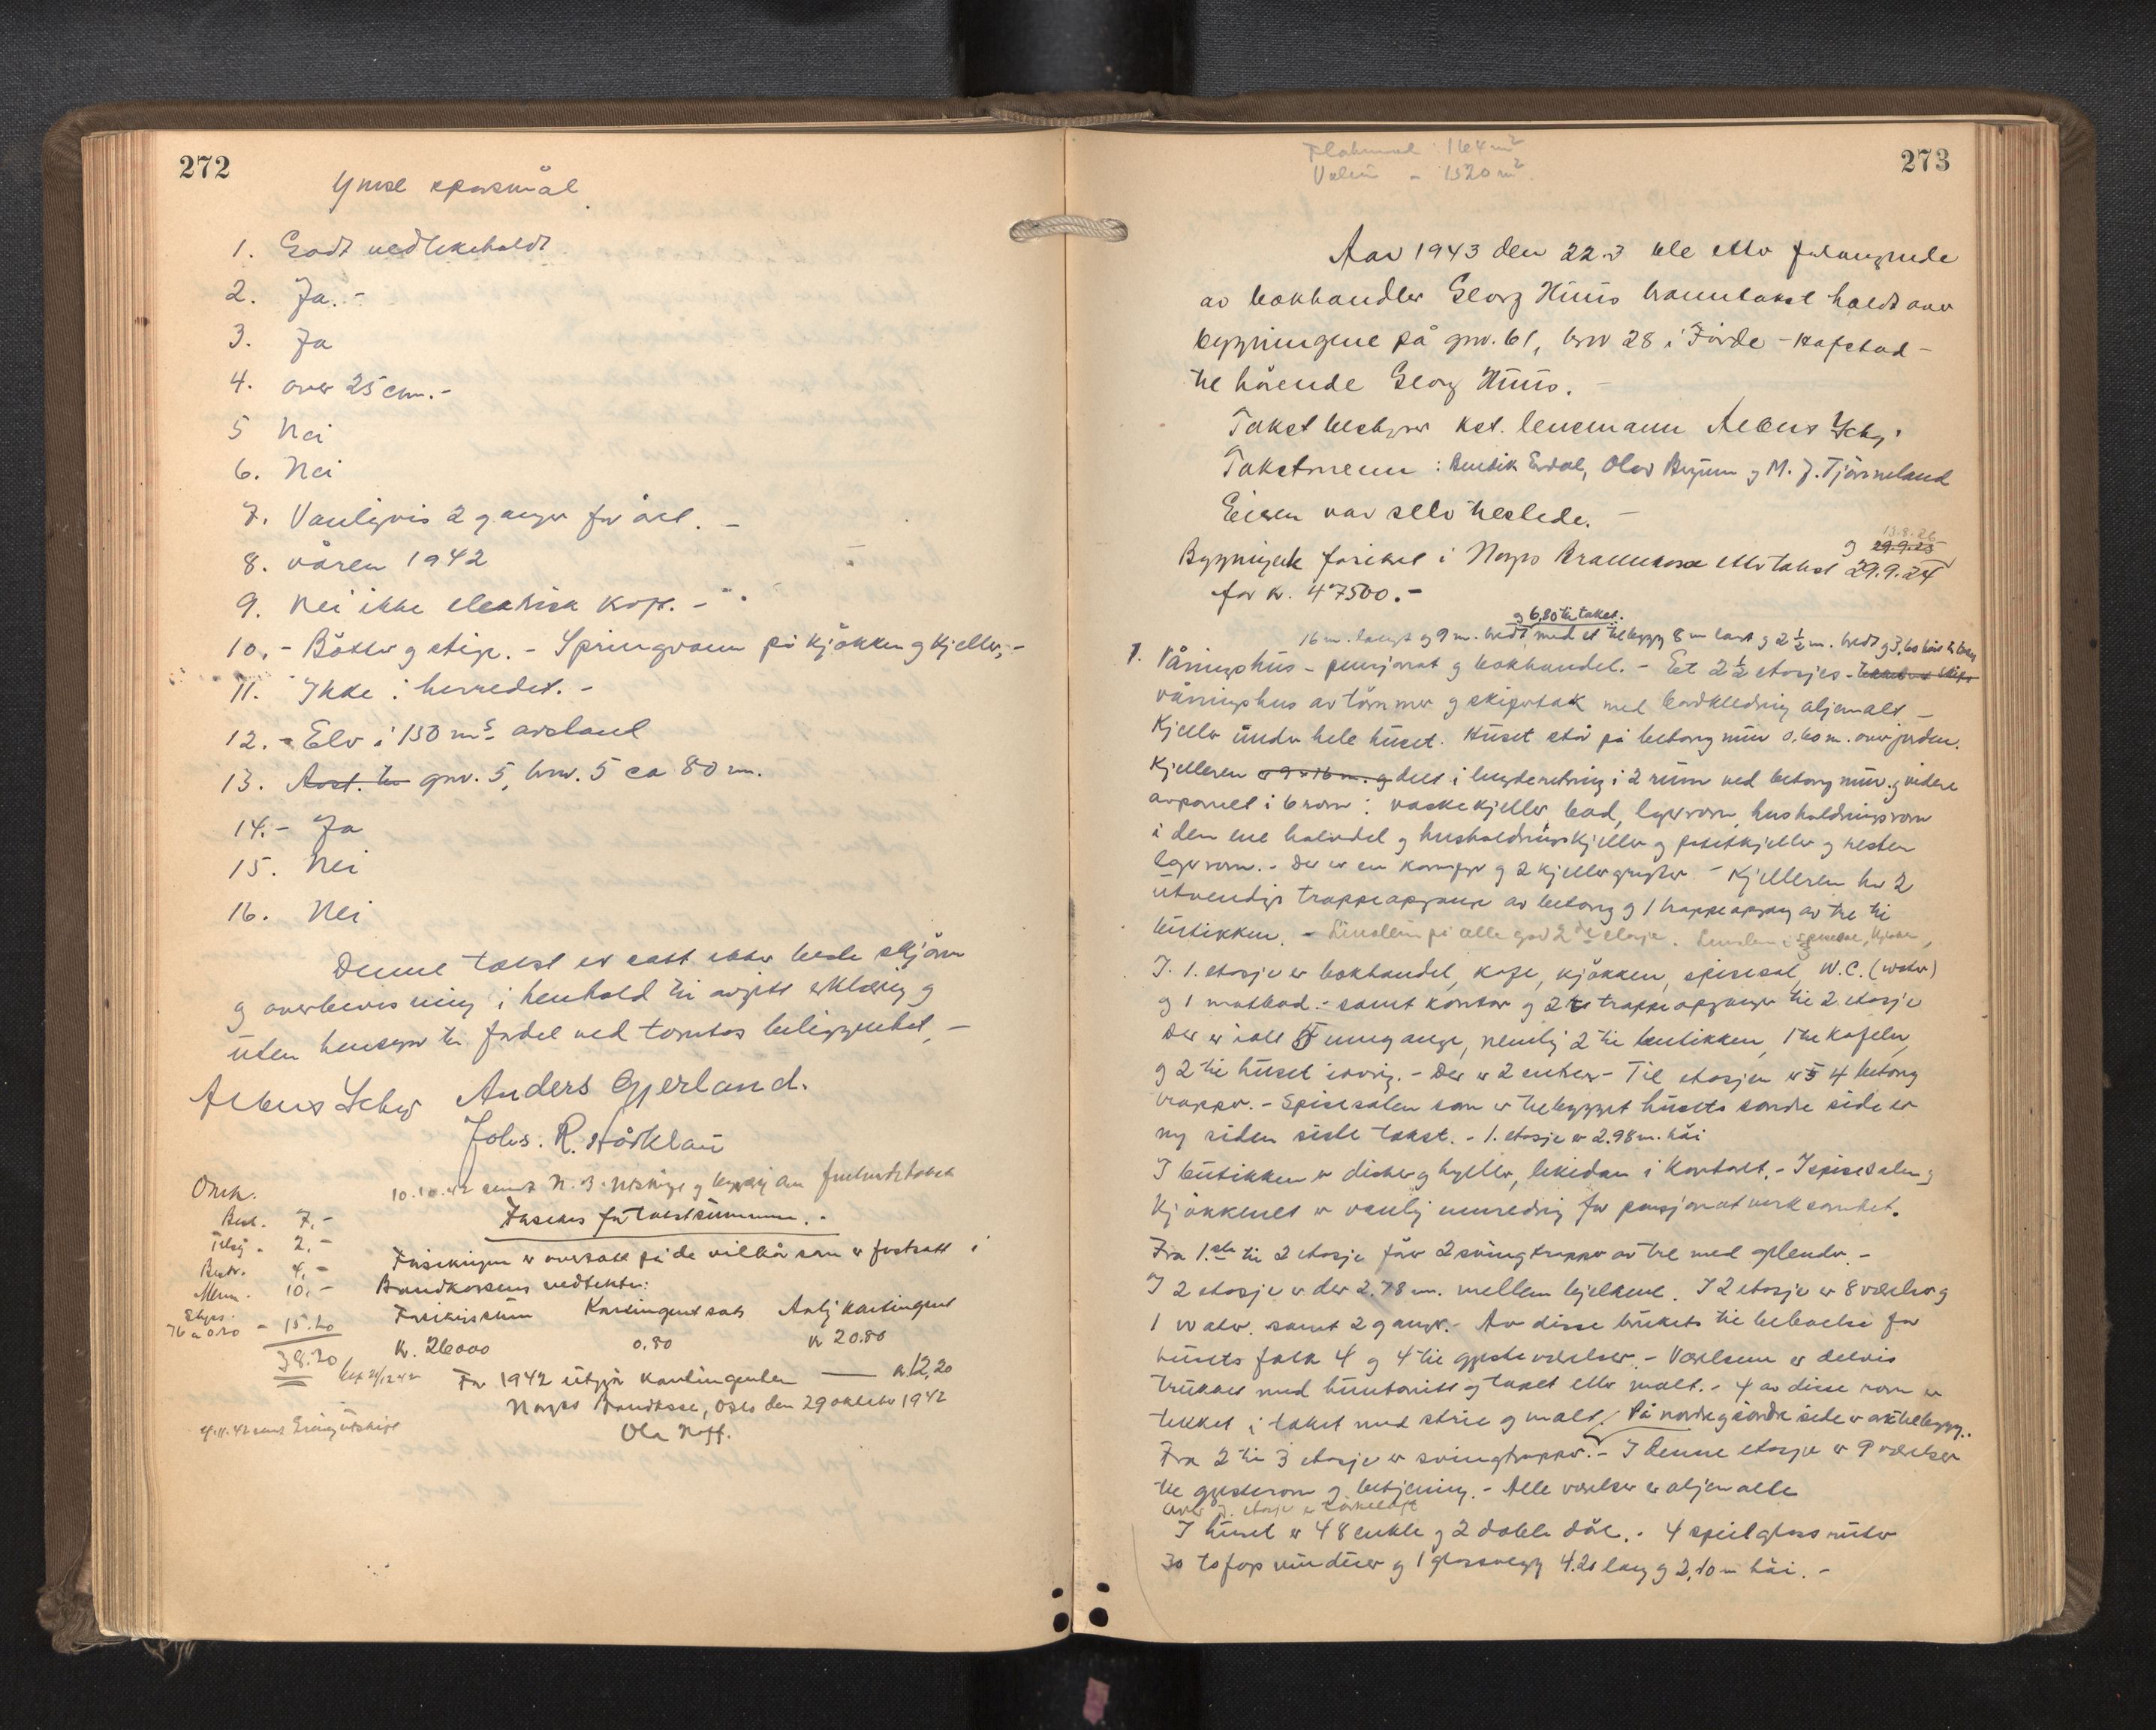 272
Ymse spørsmål.
1. Godt vedlikeholdt
2. Ja. -
3. Ja
4. over 25 cm. -
5 Nei
6. Nei
7. Vanligvis 2 ganger for året. -
8. våren 1942
9. Nei ikke elektrisk kraft. -
10. - Bøtter og stige. - Springvann på kjøkken og kjeller, -
11. Ikke i herredet. -
12. - Elv i 150 m's avstand
13. Avst. til gnr. 5, brnr. 5 ca 80 m.
14. - Ja
15. Nei
16. Nei
Denne takst er satt etter beste skjønn
og overbevisning i henhold til avgitt erklæring og
uten hensyn til fordel ved tomtas beliggenhet, -
Anders Gjerland.
Johs. R. Hårklau
Omk.
Best. 7.-
2.-
Bestr. 4.-
10.-
76 a 0.20 - 15.20
38.20
10.10.42 sendt N. B. utskrift og
Forsikres for takstsummen. -
Forsikringen er overtatt på de vilkår som er fastsatt i
Brandkassens vedtekter:
Forsikrissum Kontingentsats Årlig kontingent
kr. 26000 0.80 kr 20.80
For 1942 utgjør kontingenten — kr. 12,20
Norges Brandkasse, Oslo den 29 oktober 1942
Ola Hoff.
273
Flateinnh: 164 m²
Volum - 1320 m².
Aar 1943 den 22.3 ble etter forlangende
av bokhandler Georg Huus branntakst holdt over
bygningene på gnr. 61, brnr 28 i Førde - Hafstad -
tilhørende Georg Huus. -
Takstbestyrer kst. lensmann
Takstmenn: Bendik Erdal, Olav Bruum og M. J. Tjønneland
Eieren var selv tilstede. -
13.8.26
og 29.9.25
Bygningene forsikret i Norges Brannkasse etter takst 29.9.24
for kr. 47500. -
og 6,80 til taket.
16 m. langt og 9 m. bredt med et tilbygg 8 m langt og 2 ½ m. bredt og 3,60 høit til taket
1. Våningshus - pensjonat og bokhandel. - Et 2 ½ etasjes -
våningshus av tømmer og skifertak med bordkledning oljemalt -
Kjeller under hele huset. Huset står på betong mur 0,60 m. over jorden.
Kjelleren er 9 x 16 m. og delt i lengderetning i 2 rum ved betong mur og videre
avpanelt i 6 rom: vaskekjeller, bad, lagerrom, husholdningsrom
i den ene halvdel og husholdningskjeller og potetkjeller og resten
lagerrom. - Der er en komfyr og 2 kjellergryter. - Kjelleren har 2
utvendige trappeopganger av betong og 1 trappeopgang av tre til
butikken. - Linoleum på alle golv 2de etasje.
I. 1. etasje er bokhandel, kafe, kjøkken, spisesal, W.C. (water)
og 1 matbod. - samt kontor og 2 trappeopganger til 2. etasje
Der er i alt 5 innganger, nemlig 2 til butikken, 1 til kafeen,
og 2 til huset iøvrig. - Der er 2 entreer - Til etasjen er 4 betong
trapper. - Spisesalen som er tilbygget husets søndre side er
ny siden siste takst. - 1. etasje er 2.98 m. høi
I butikken er disker og hyller, likedan i kontoret. - I spisesalen og
kjøkkenet er vanlig innredning for pensjonatvirksomhet.
Fra 1.ste til 2 etasje fører 2 svingtrapper av tre med gelender. -
I 2 etasje er der 2.78 m. mellem bjelkene. I 2 etasje er 8 værelser og
1 water. samt 2 ganger. - Av disse brukets til beboelse for
husets folk 4 og 4 til gjesteværelser. - Værelsene er delvis
trukket med huntonitt og taket eller malt. - 4 av disse rom er
trekket i taket med strie og malt. På nordre og søndre side er
Fra 2 til 3 etasje er svingtrapper. - I denne etasje er 9 værelser
til gjesterom og betjening. - Alle værelser er oljemalte
over 3. etasje er tørkeloft
I huset er 48 enkle og 2 doble dører. - 4 speilglassruter
30 tofags vinduer og 1 glassvegg 4.20 lang og 2,10 m høi. -